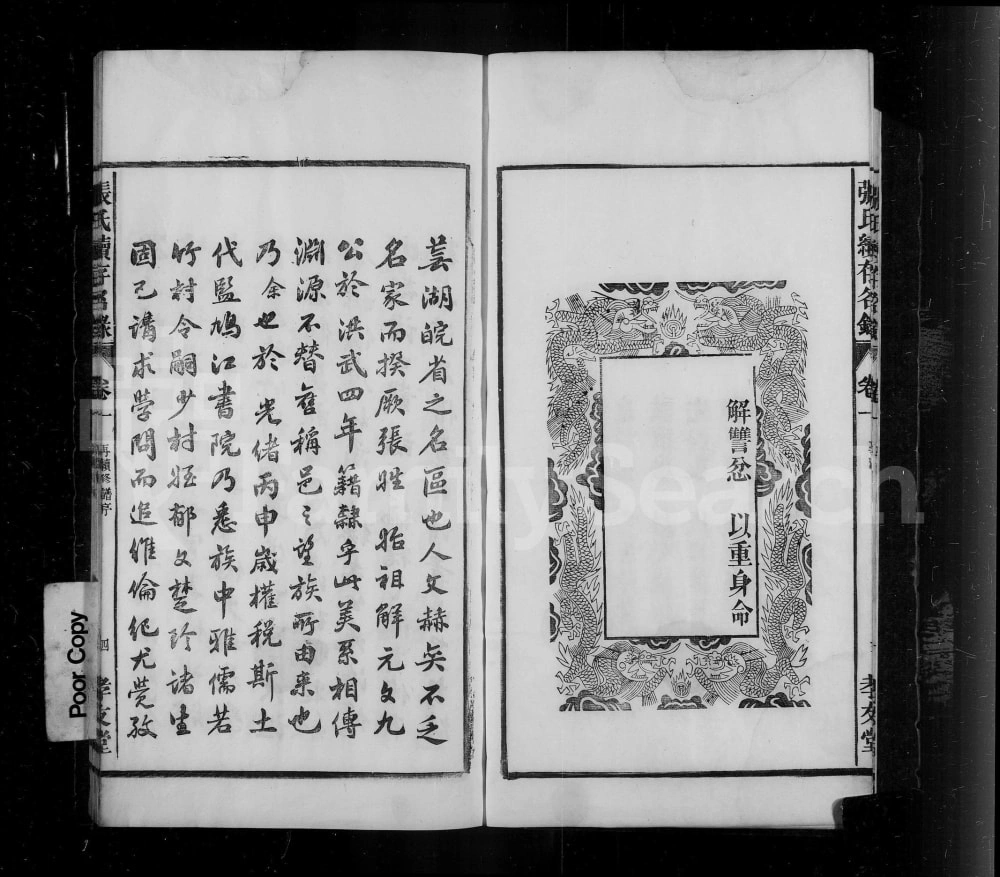 張氏續存名錄
卷一
孝友堂
解讐忿 以重身命
蕪湖皖省之名區也人文赫矣不乏
名家而揆厥張姓始祖解元文九
公於洪武四年籍隸乎此美系相傳
淵源不替舊稱邑之望族所由來也
乃余也於光緒丙申歲權稅斯土
代監鳩江書院乃悉族中雅儒若
竹村令嗣少村姪郁文楚珍諸生
固已講求學問而追維倫紀尤覺孜
張氏續存名錄
卷一
再續修譜序
四
孝友堂
Poor Copy
FamilySearch